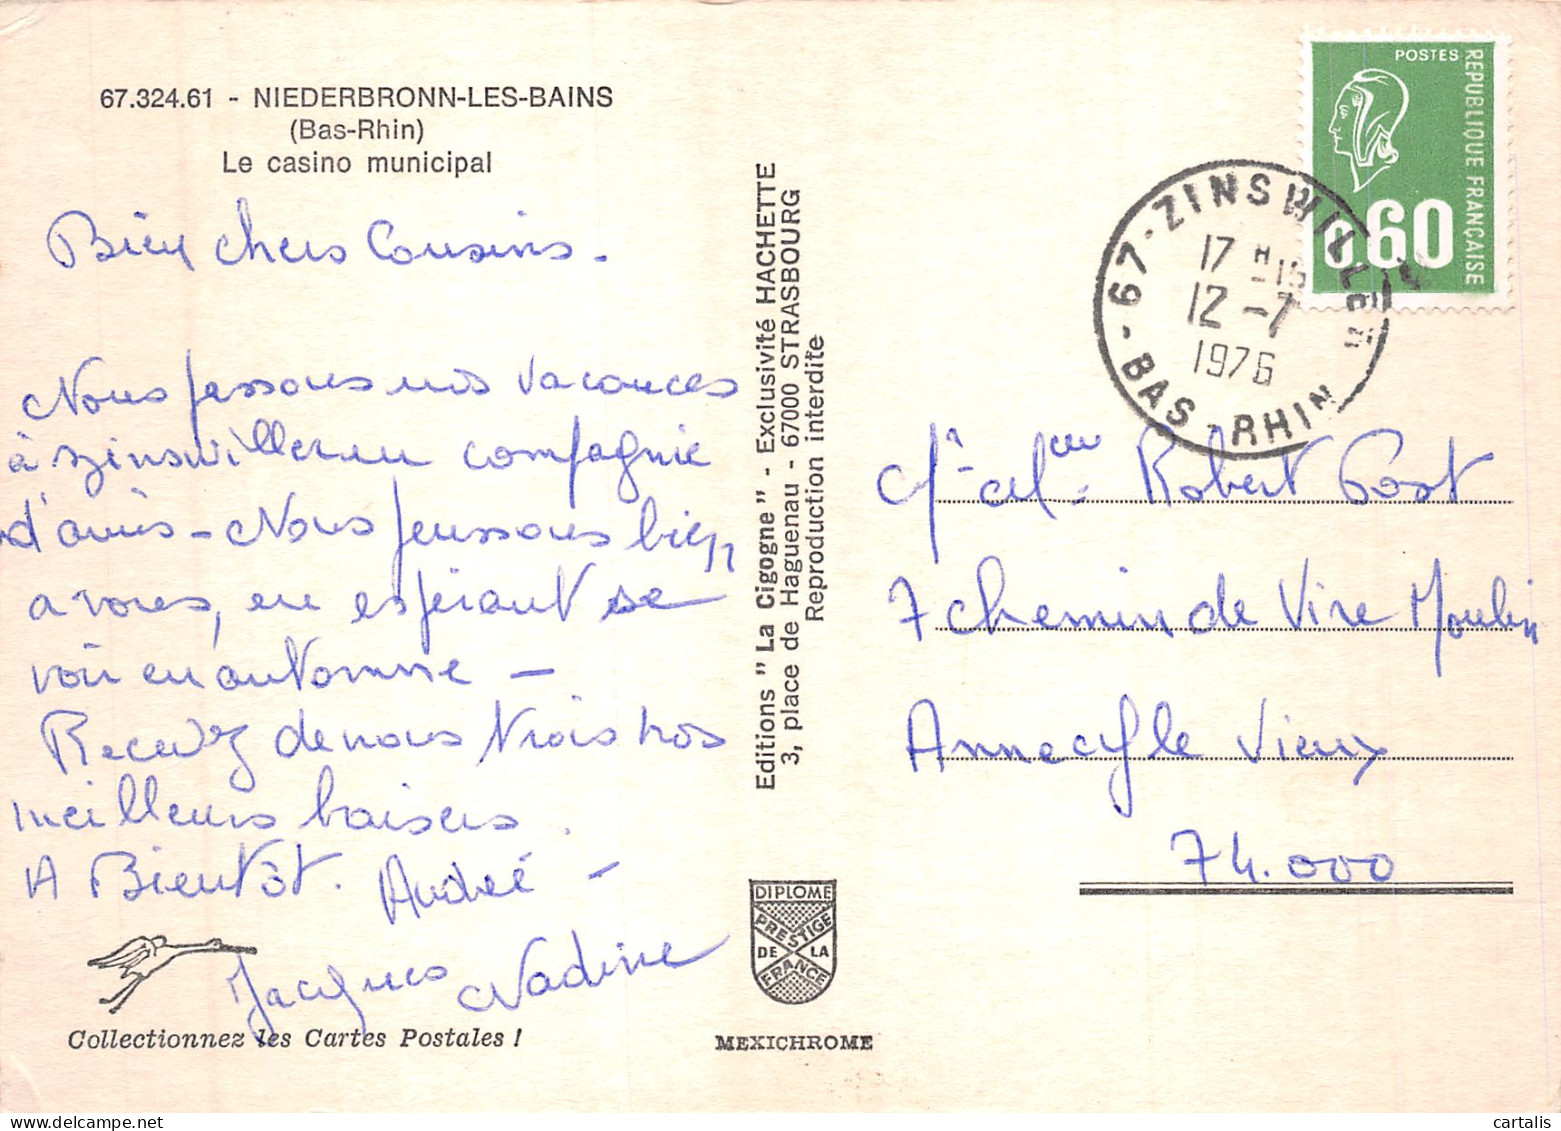 67.324.61 - NIEDERBRONN-LES-BAINS
(Bas-Rhin)
Le casino municipal
Bien chers Cousins -
Nous passons nos vacances
à Zinswiller en compagnie
d'amis - Nous pensons bien
a vous, en espérant se
voir en automne -
Recevez de nous trois nos
meilleurs baisers.
A Bientôt. André -
Jacques Nadine
Collectionnez les Cartes Postales !
Editions "La Cigogne" - Exclusivité HACHETTE
3, place de Haguenau - 67000 STRASBOURG
Reproduction interdite
DIPLOME
PRESTIGE
DE LA
FRANCE
MEXICHROME
POSTES
REPUBLIQUE FRANÇAISE
0.60
67-ZINSWILLER
17 H 15
12-7
1976
- BAS-RHIN
Robert Post
7 chemin de Vire Moulin
Annecy le Vieux
74.000
cartalis